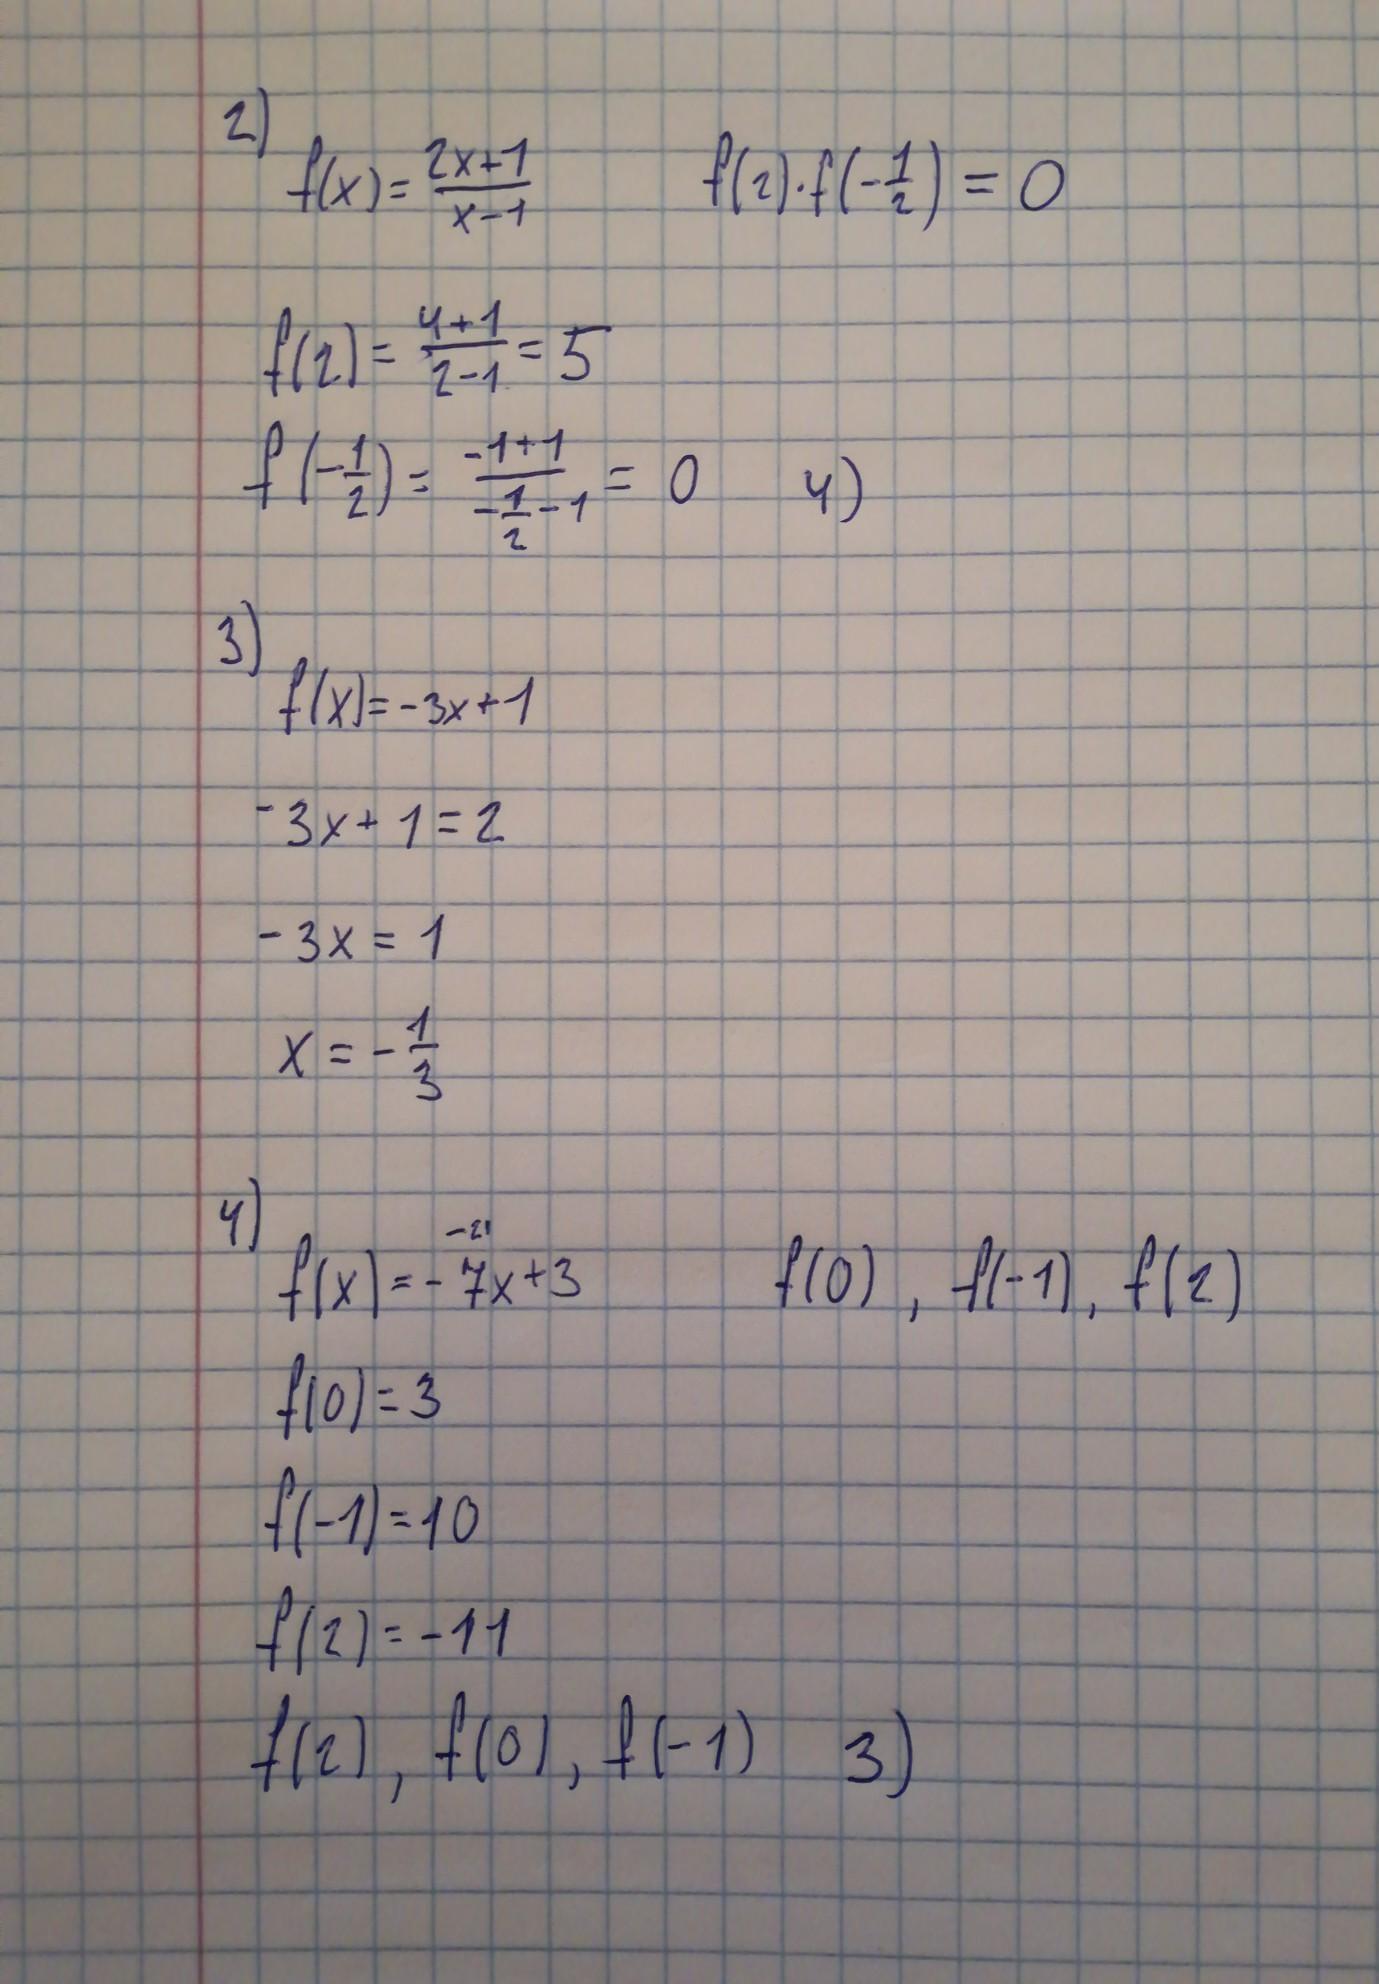 2)
f(x) = (2x+1)/(x-1) f(2)·f(-1/2) = 0
f(2) = (4+1)/(2-1) = 5
f(-1/2) = (-1+1)/(-1/2-1) = 0 4)
3)
f(x) = -3x+1
-3x+1=2
-3x=1
x = -1/3
4)
-21
f(x) = -7x+3 f(0), f(-1), f(2)
f(0)=3
f(-1)=10
f(2)=-11
f(2), f(0), f(-1) 3)